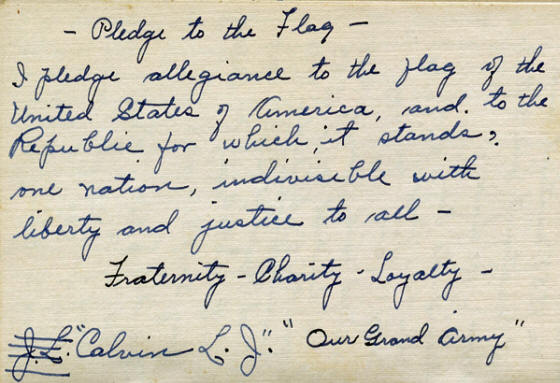 - Pledge to the Flag -
I pledge allegiance to the flag of the
United States of America, and. to the
Republic for which, it stands,
one nation, indivisible with
liberty and justice to all -
Fraternity - Charity - Loyalty -
J.L. "Calvin L. J". "Our Grand Army"